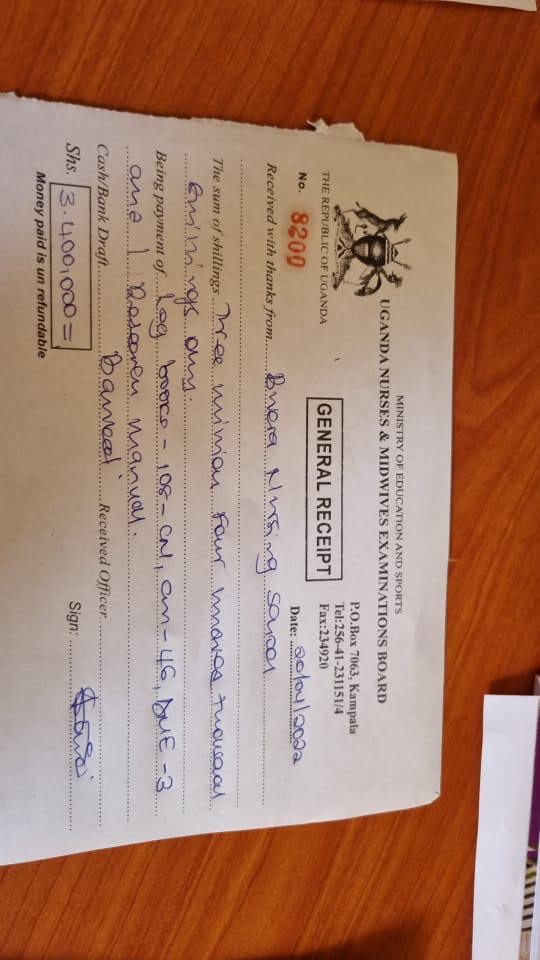 MINISTRY OF EDUCATION AND SPORTS
UGANDA NURSES & MIDWIVES EXAMINATIONS BOARD
THE REPUBLIC OF UGANDA
P.O.Box 7063, Kampala
Tel:256-41-231151/4
Fax:234920
GENERAL RECEIPT
No. 8200
Date: 20/04/2022
Received with thanks from Nursing School
The sum of shillings Three million Four hundred thousand
shillings only.
Being payment of Log books - 108 - CN, CM - 46, DME - 3
and 1 Research manual.
Cash/Bank Draft Banked Received Officer
Shs. 3.400,000=
Sign:
Money paid is un refundable